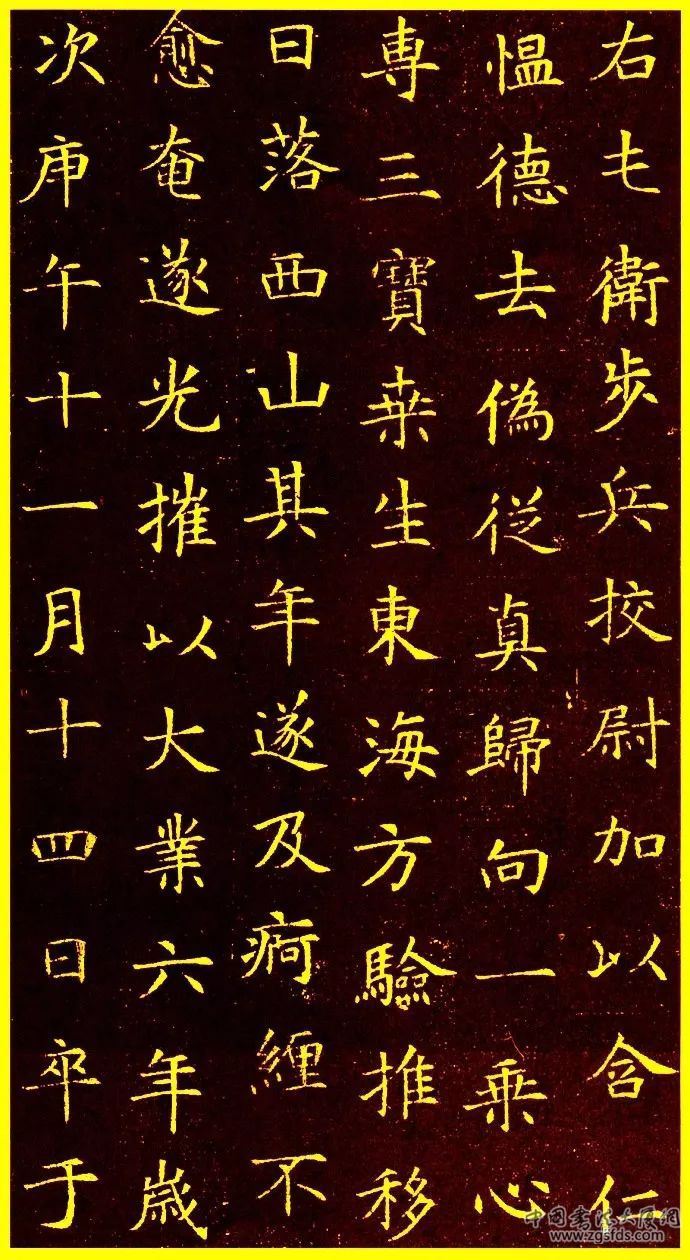 右屯衛步兵挍尉加以含仁
愠德去偽從真歸向一乘心
專三寶桒生東海方驗推移
日落西山其年遂及痾纏不
愈奄遂光摧以大業六年歲
次庚午十一月十四日卒于
中国书法大厦网
www.zgsfds.com